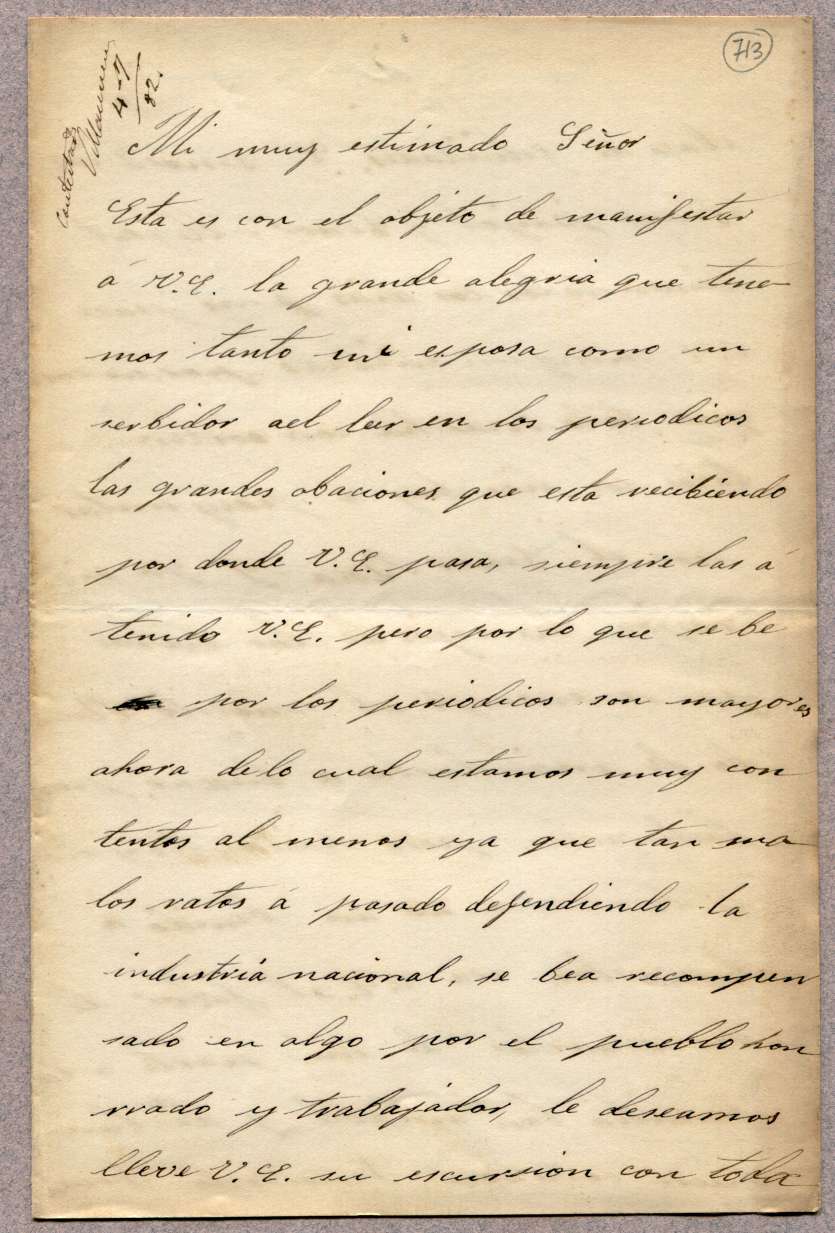 713
contestada
4-7
82.
Mi muy estimado Señor
Esta es con el objeto de manifestar
á V.E. la grande alegria que tene-
mos tanto mi esposa como un
serbidor ael leer en los periodicos
las grandes obaciones que esta recibiendo
por donde V.E. pasa, siempre las á
tenido V.E. pero por lo que se be
por los periodicos son mayores
ahora de lo cual estamos muy con
tentos al menos ya que tan ma
los ratos á pasado defendiendo la
industria nacional, se bea recompen
sado en algo por el pueblo hon
rrado y trabajador, le deseamos
lleve V.E. su escursion con toda